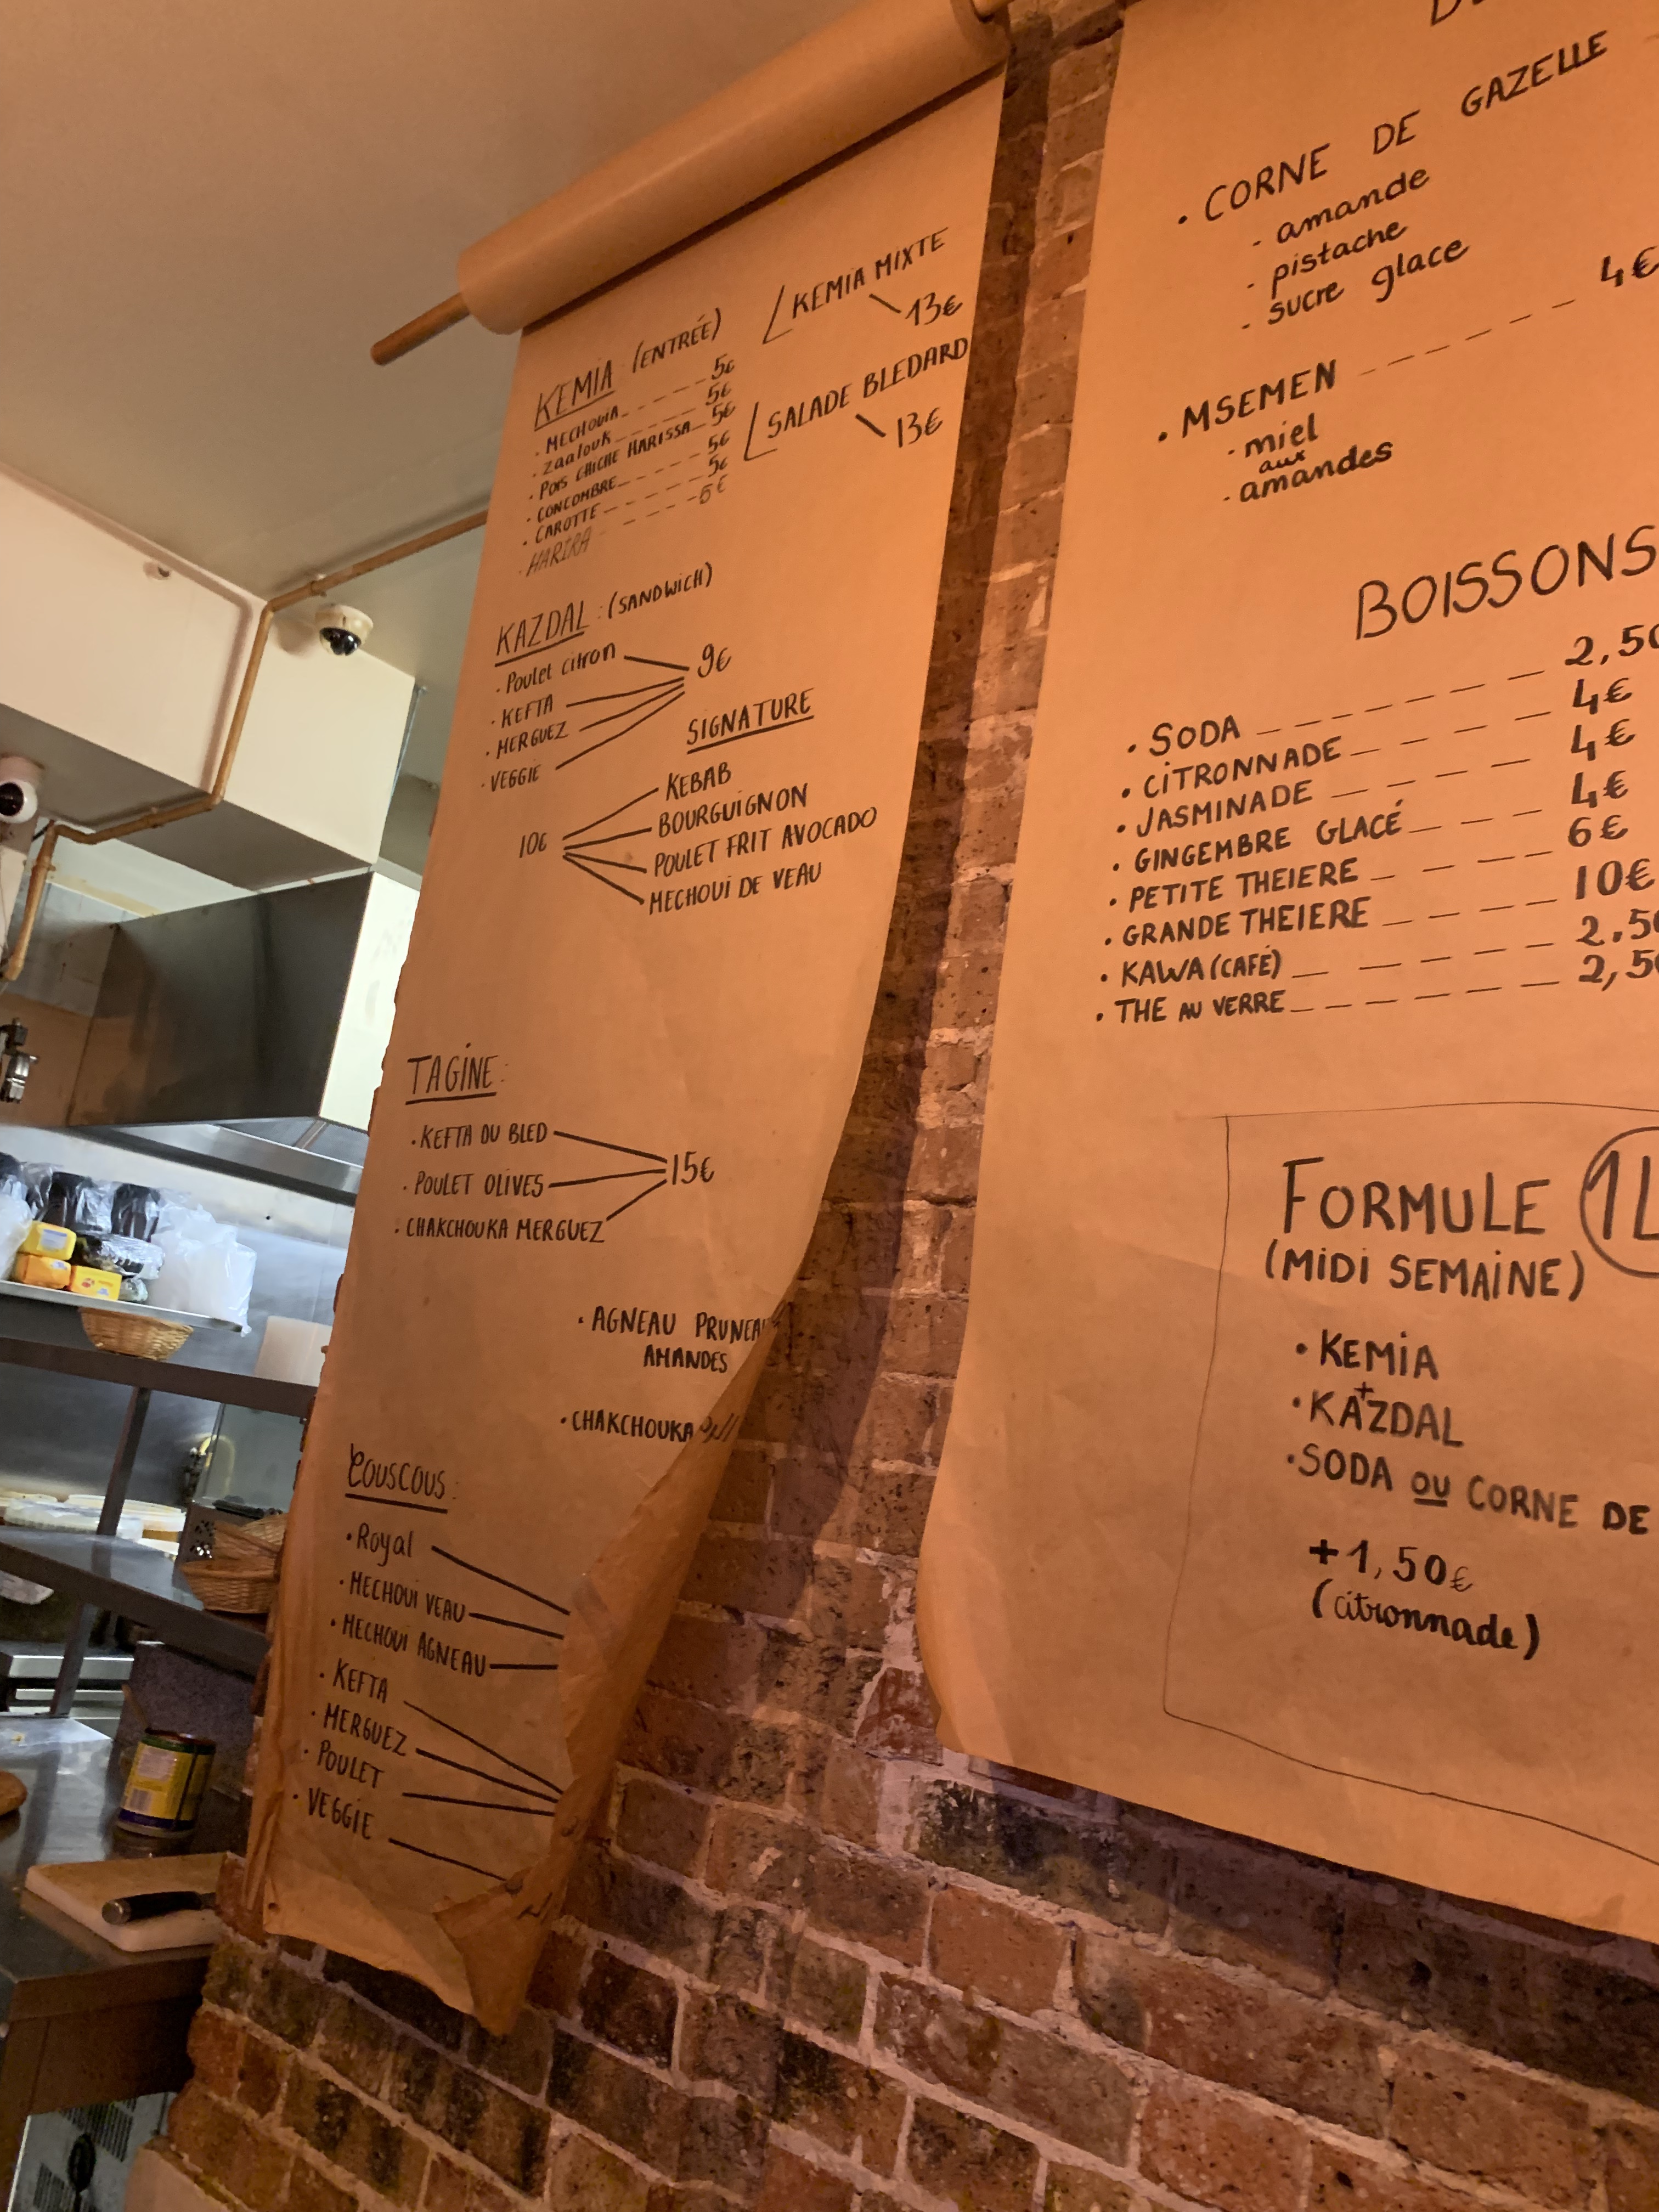 KEMIA (ENTRÉE)
• MECHOUIA 5€
• Zaalouk 5€
• POIS CHICHE HARISSA 5€
• CONCOMBRE 5€
• CAROTTE 5€
• HARIRA 5€
KEMIA MIXTE
13€
SALADE BLEDARD
13€
KAZDAL : (SANDWICH)
• Poulet citron
• KEFTA
• MERGUEZ
• VEGGIE
9€
SIGNATURE
KEBAB
BOURGUIGNON
POULET FRIT AVOCADO
MECHOUI DE VEAU
10€
TAGINE :
• KEFTA DU BLED
• POULET OLIVES
• CHAKCHOUKA MERGUEZ
15€
• AGNEAU
AMANDES
• CHAKCHOUKA
COUSCOUS :
• Royal
• MECHOUI VEAU
• MECHOUI AGNEAU
• KEFTA
• MERGUEZ
• POULET
• VEGGIE
• CORNE DE GAZELLE
- amande
- pistache
- sucre glace
• MSEMEN 4€
- miel
aux
- amandes
BOISSONS
• SODA 2,50
• CITRONNADE 4€
• JASMINADE 4€
• GINGEMBRE GLACÉ 4€
• PETITE THEIERE 6€
• GRANDE THEIERE 10€
• KAWA (CAFÉ) 2.50
• THE AU VERRE 2,50
FORMULE
(MIDI SEMAINE)
• KEMIA
+
• KAZDAL
• SODA OU CORNE DE
+1,50€
(citronnade)